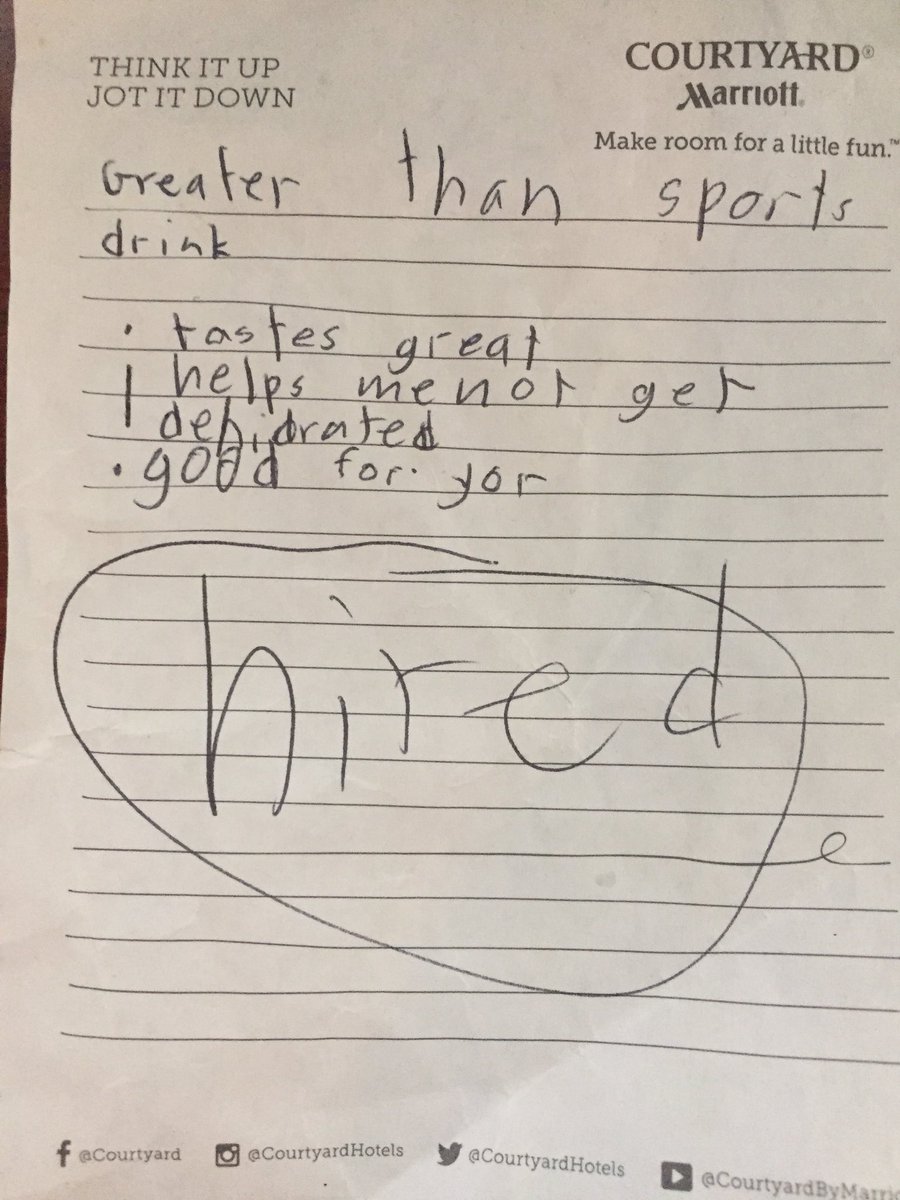 THINK IT UP
JOT IT DOWN
COURTYARD®
Marriott.
Make room for a little fun.™
Greater than sports
drink
· tastes great
| helps me not get
dehidrated
· good for yor
hired
@Courtyard
@CourtyardHotels
@CourtyardHotels
@CourtyardByMarrio